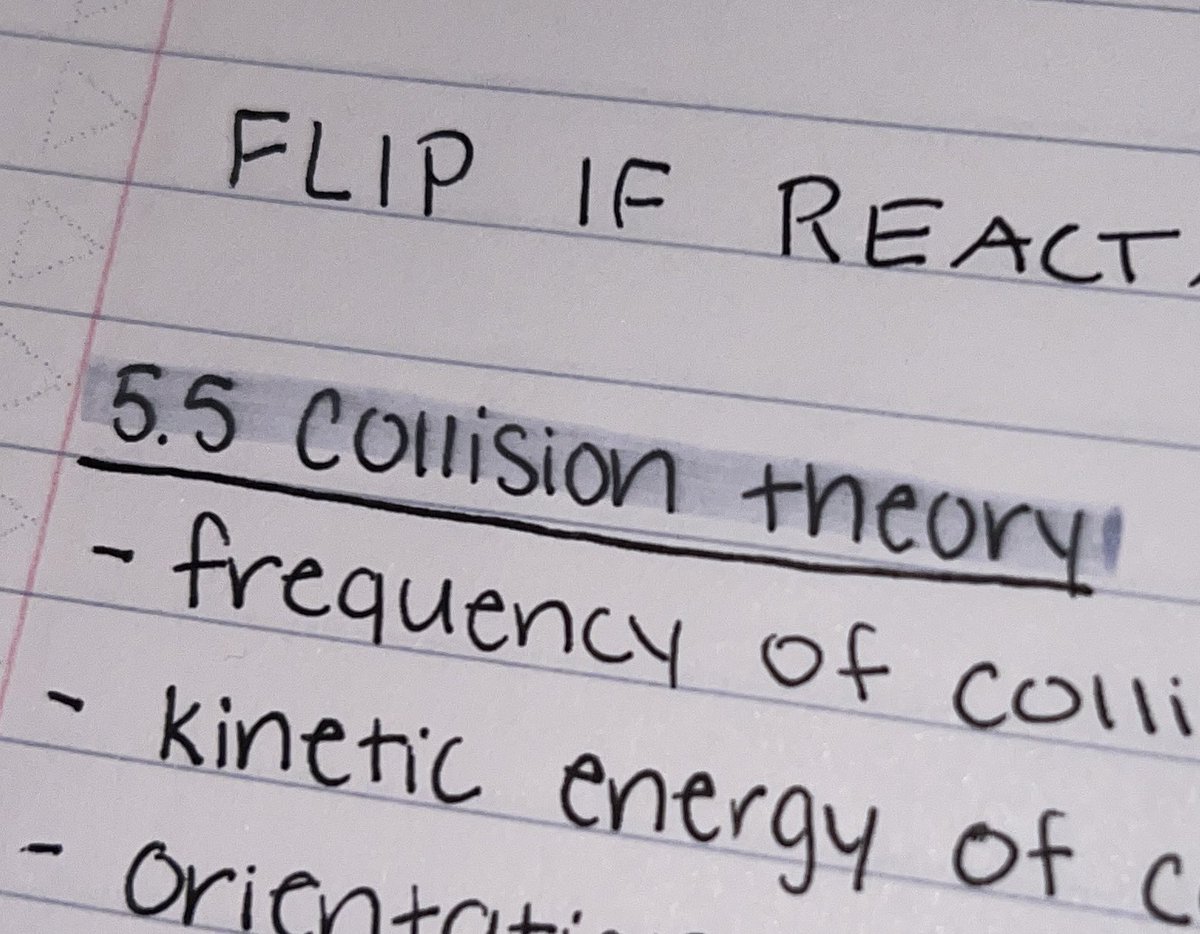 FLIP IF REACT
5.5 Collision theory
- frequency of colli
- kinetic energy of c
- orientati